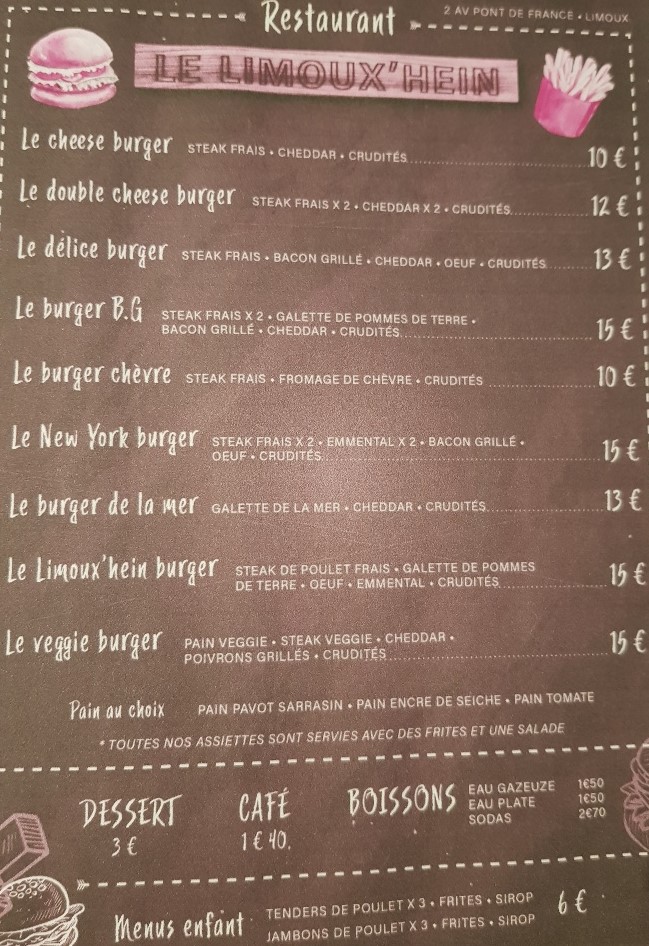 2 AV PONT DE FRANCE • LIMOUX
Restaurant
LE LIMOUX'HEIN
Le cheese burger STEAK FRAIS • CHEDDAR • CRUDITÉS 10 €
Le double cheese burger STEAK FRAIS X 2 • CHEDDAR X 2 • CRUDITÉS 12 €
Le délice burger STEAK FRAIS • BACON GRILLÉ • CHEDDAR • OEUF • CRUDITÉS 13 €
Le burger B.G STEAK FRAIS X 2 • GALETTE DE POMMES DE TERRE •
BACON GRILLÉ • CHEDDAR • CRUDITÉS 15 €
Le burger chèvre STEAK FRAIS • FROMAGE DE CHÈVRE • CRUDITÉS 10 €
Le New York burger STEAK FRAIS X 2 • EMMENTAL X 2 • BACON GRILLÉ •
OEUF • CRUDITÉS 15 €
Le burger de la mer GALETTE DE LA MER • CHEDDAR • CRUDITÉS 13 €
Le Limoux'hein burger STEAK DE POULET FRAIS • GALETTE DE POMMES
DE TERRE • OEUF • EMMENTAL • CRUDITÉS 15 €
Le veggie burger PAIN VEGGIE • STEAK VEGGIE • CHEDDAR •
POIVRONS GRILLÉS • CRUDITÉS 15 €
Pain au choix PAIN PAVOT SARRASIN • PAIN ENCRE DE SEICHE • PAIN TOMATE
* TOUTES NOS ASSIETTES SONT SERVIES AVEC DES FRITES ET UNE SALADE
DESSERT
3 €
CAFÉ
1 € 40.
BOISSONS
EAU GAZEUZE 1€50
EAU PLATE 1€50
SODAS 2€70
Menus enfant TENDERS DE POULET X 3 • FRITES • SIROP
JAMBONS DE POULET X 3 • FRITES • SIROP
6 €